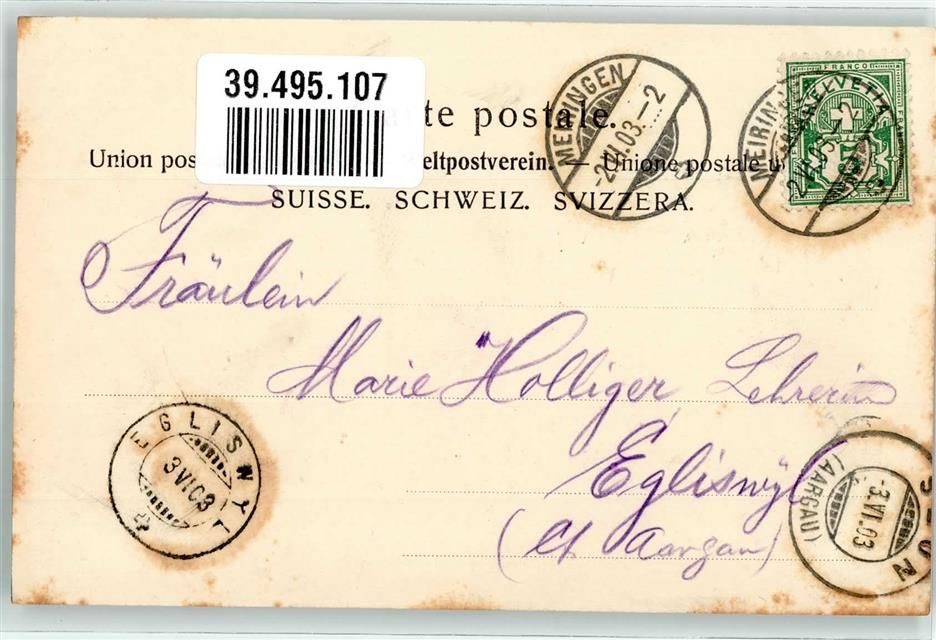 39.495.107
te postale.
Union pos eltpostverein. — Unione postale u
SUISSE. SCHWEIZ. SVIZZERA.
MEIRINGEN
-2.VI.03.-2
MEIRIN
2.VI.03.-2
FRANCO
HELVETIA
Fräulein
Marie Holliger Lehrerin
Egliswyl
(Ct. Aargau)
EGLISWYL
3 VI 03
SEON
(AARGAU)
-3.VI.03